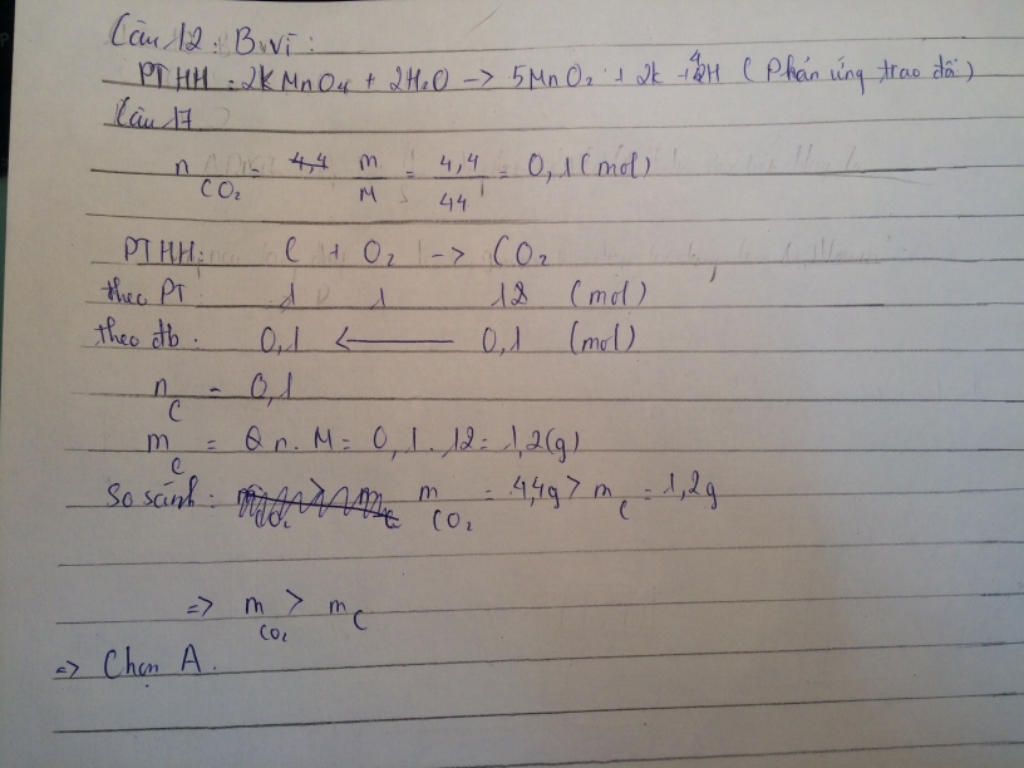 Câu 12: B. vì:
PTHH: 2KMnO4 + 2H2O -> 5MnO2 + 2K + 4H (Phản ứng trao đổi)
Câu 17
nCO2 = m/M = 4,4/44 = 0,1 (mol)
PTHH: C + O2 -> CO2
theo PT: 1 1 1 (mol)
theo đb: 0,1 <—— 0,1 (mol)
nC = 0,1
mC = n. M = 0,1. 12 = 1,2(g)
So sánh: mCO2 = 4,4g > mC = 1,2g
=> mCO2 > mC
=> Chọn A.